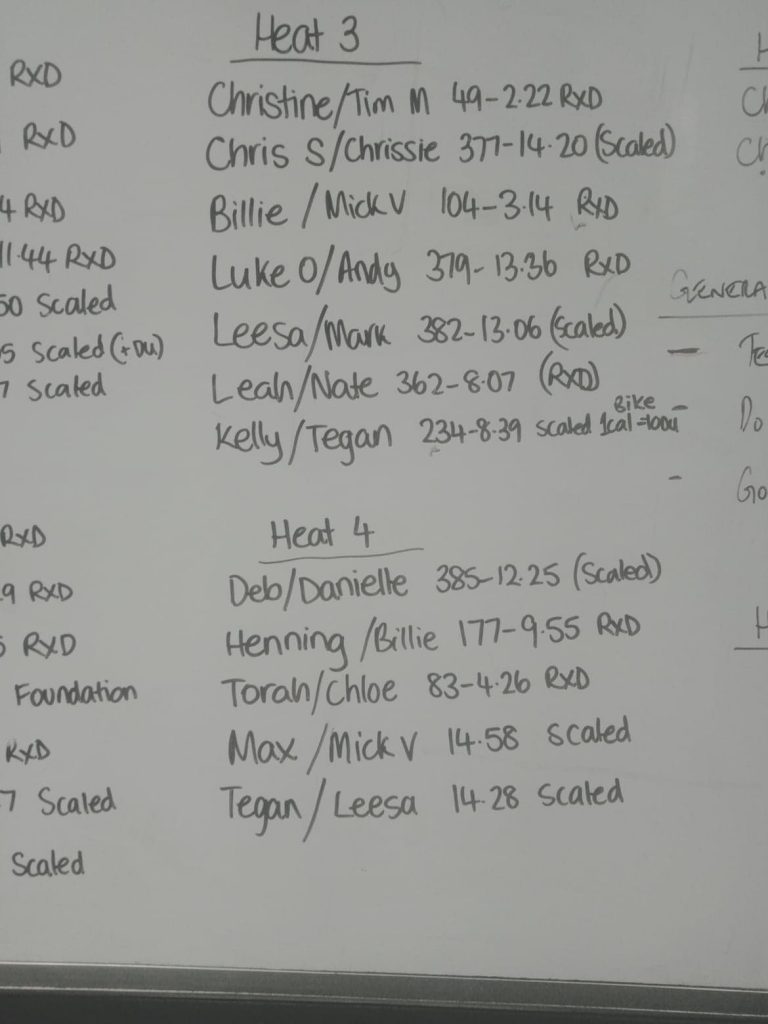 RXD
RXD
4 RXD
11.44 RXD
50 Scaled
5 Scaled (+DU)
7 Scaled
RXD
9 RXD
5 RXD
Foundation
RXD
7 Scaled
Scaled
Heat 3
Christine/Tim M 49-2.22 RXD
Chris S/Chrissie 377-14.20 (Scaled)
Billie/Mick V 104-3.14 RXD
Luke O/Andy 379-13.36 RXD
Leesa/Mark 382-13.06 (Scaled)
Leah/Nate 362-8.07 (RXD)
Kelly/Tegan 234-8.39 scaled Bike 1cal=10DU
Heat 4
Deb/Danielle 385-12.25 (Scaled)
Henning/Billie 177-9.55 RXD
Torah/Chloe 83-4.26 RXD
Max/Mick V 14.58 Scaled
Tegan/Leesa 14.28 Scaled
H
Ch
Ch
GENERA
- Te
- Do
- Go
H